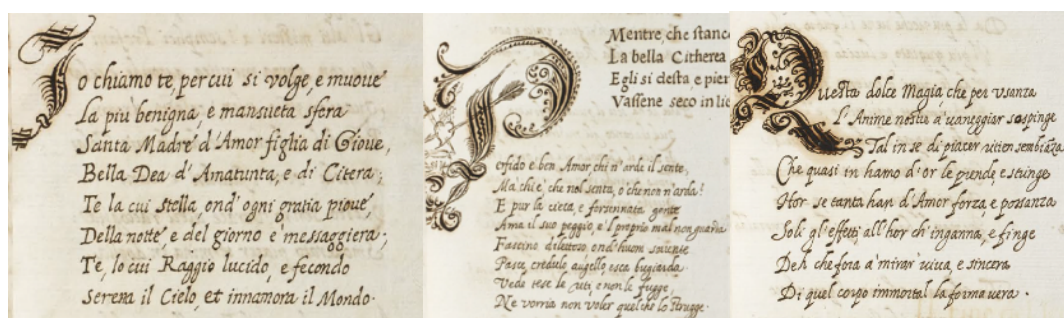 Io chiamo te, per cui si volge, e muoue
La più benigna e mansueta sfera
Santa Madre d'Amor figlia di Gioue,
Bella Dea d'Amatunta, e di Citera;
Te la cui stella, ond'ogni gratia pioue,
Della notte, e del giorno è messaggiera;
Te, lo cui Raggio lucido, e fecondo
Serena il Cielo, et innamora il Mondo.
Mentre, che stanc
La bella Citherea
Egli si desta, e pien
Vassene seco in lie
Perfido è ben Amor, chi n'arde il sente,
Ma chi è che nol senta, o che non n'arda?
E pur la cieca, e forsennata gente
Ama il suo peggio, e'l proprio mal non guarda
Fascino dilettoso, ond'huom souente
Pasce, credulo augello, esca bugiarda.
Vede tese le reti, e non le fugge,
Ne vorria non voler quel che lo strugge.
Questa dolce Magia, che per vsanza
L'Anime nostre a vaneggiar sospinge
Tal in se di piacer vitien sembianza
Che quasi in hamo d'or le prende, e stringe
Hor se tanta han d'Amor forza, e possanza
Soli gl'effetti all'hor ch'inganna, e finge
Deh che fora a mirar viua, e sincera
Di quel corpo immortal la forma uera.